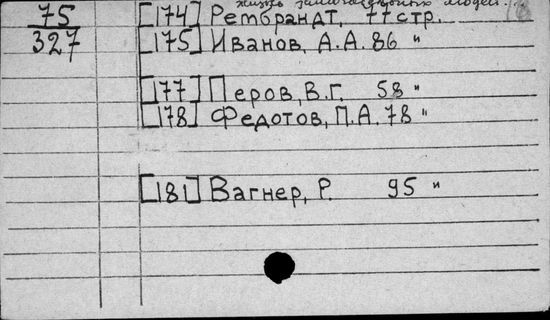 75
327
жизнь замечательных людей...
[174] Рембрандт, 77 стр.
[175] Иванов, А.А. 86 "
[177] Перов, В.Г. 58 "
[178] Федотов, П.А. 78 "
[181] Вагнер, Р. 95 "